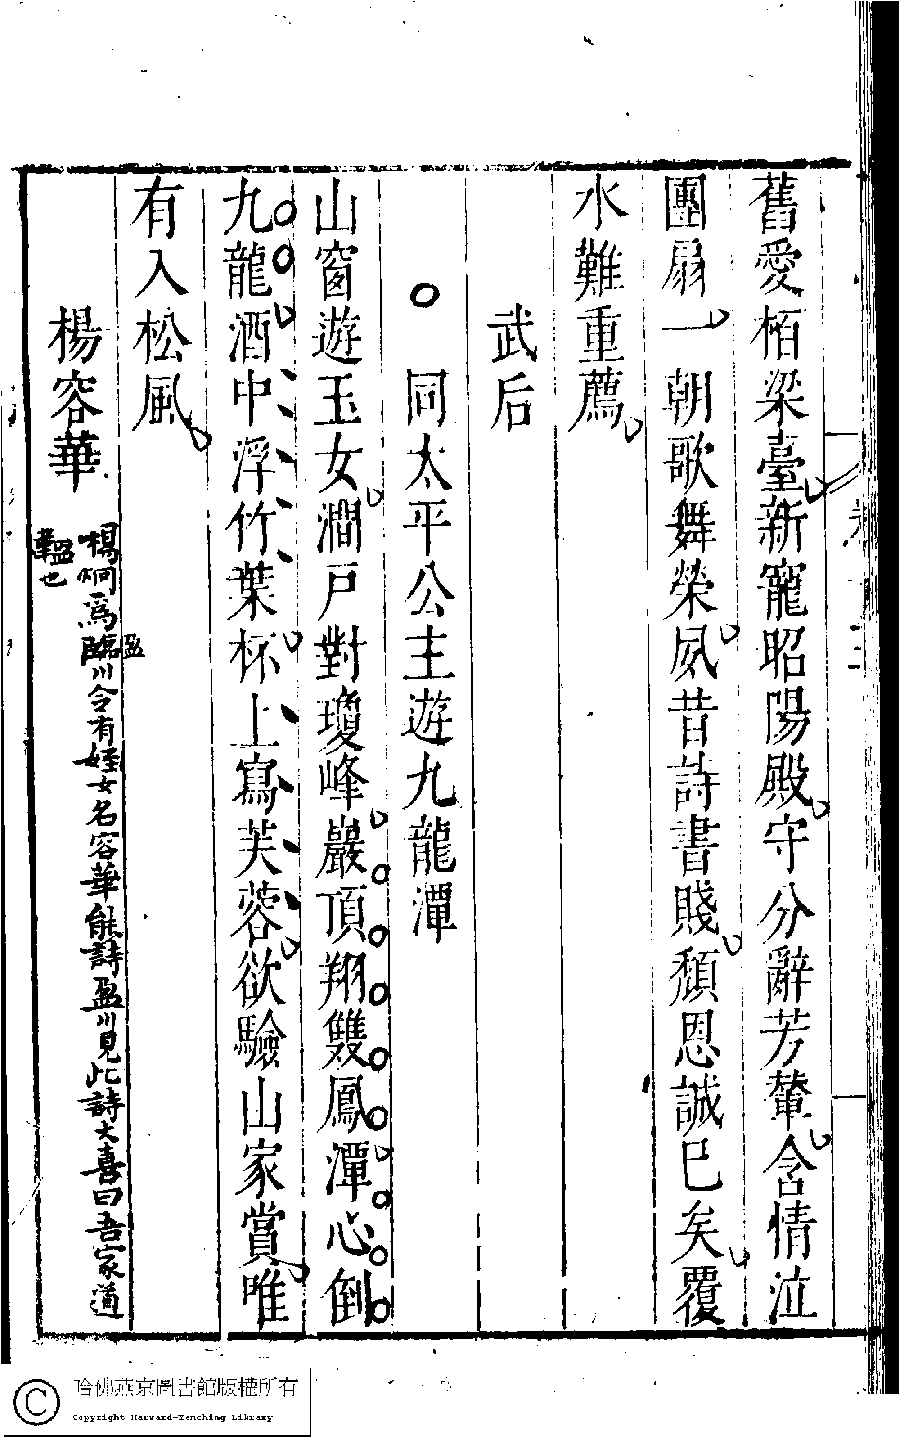 舊愛栢梁臺新寵昭陽殿守分辭芳輦含情泣
團扇一朝歌舞榮夙昔詩書賤頹恩誠已矣覆
水難重薦
武后
同太平公主遊九龍潭
山窗遊玉女澗戶對瓊峰巖頂翔雙鳳潭心倒
九龍酒中浮竹葉杯上寫芙蓉欲驗山家賞唯
有入松風
楊容華
楊炯為臨川令有姪女名容華能詩盈川見此詩大喜曰吾家道
盈
韞也
哈佛燕京圖書館版權所有
Copyright Harvard-Yenching Library